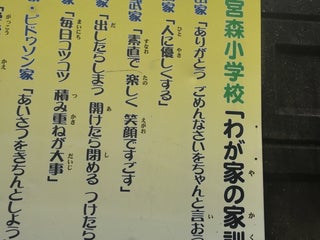 宮森小学校「わが家の家訓
家「ありがとう ごめんなさいをちゃんと言おう
家「人に優しくする」
武家「素直で 楽しく 笑顔ですごす」
家「出したらしまう 開けたら閉める つけたら
家「毎日コツコツ 積み重ねが大事」
・ビドゥソン家「あいさつをきちんとしよう